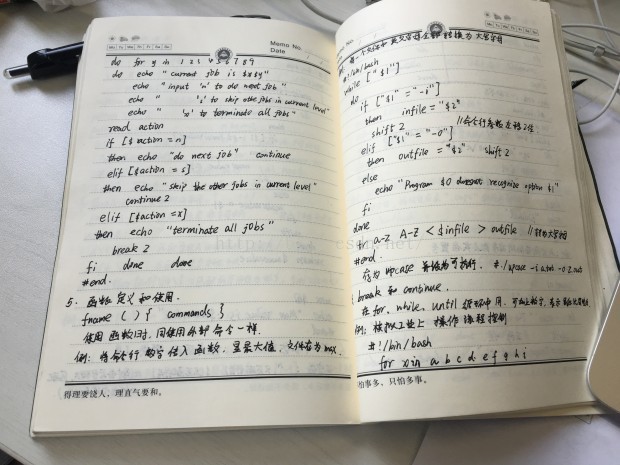 Memo No.
Date
Mo Tu We Th Fr Sa Su
do for y in 1 2 3 4 5 6 7 8 9
do echo "current job is $x$y"
echo "input 'n' to do next job"
echo " 's' to skip othe jobs in current level"
echo " 'x' to terminate all jobs"
read action
if [$action = n]
then echo "do next job" continue
elif [$action = s]
then echo "skip the other jobs in current level"
continue 2
elif [$action = x]
then echo "terminate all jobs"
break 2
fi done done
#end.
5. 函数定义和使用.
fname () { commands }
使用函数时, 同使用外部命令一样.
例: 将命令行数字传入函数, 显最大值, 文件存为max.
得理要饶人，理直气要和。
一个文件和英文字母全部转换为大写字母
#!/bin/bash
while ["$1"]
do
if ["$1" = "-i"]
then infile = "$2"
shift 2 //命令行参数左移2位
elif ["$1" = "-o"]
then outfile = "$2" shift 2
else
echo "Program $0 doesnot recognize option $1"
fi
done
a-z A-Z < $infile > outfile //转为大写
#end.
存为 upcase 可执行. #./upcase -i a.txt -o 2.out
break 和 continue.
在 for, while, until 循环中用.
例: 模拟工业上操作流程控制
#!/bin/bash
for x in a b c d e f g h i
怕事多，只怕多事。